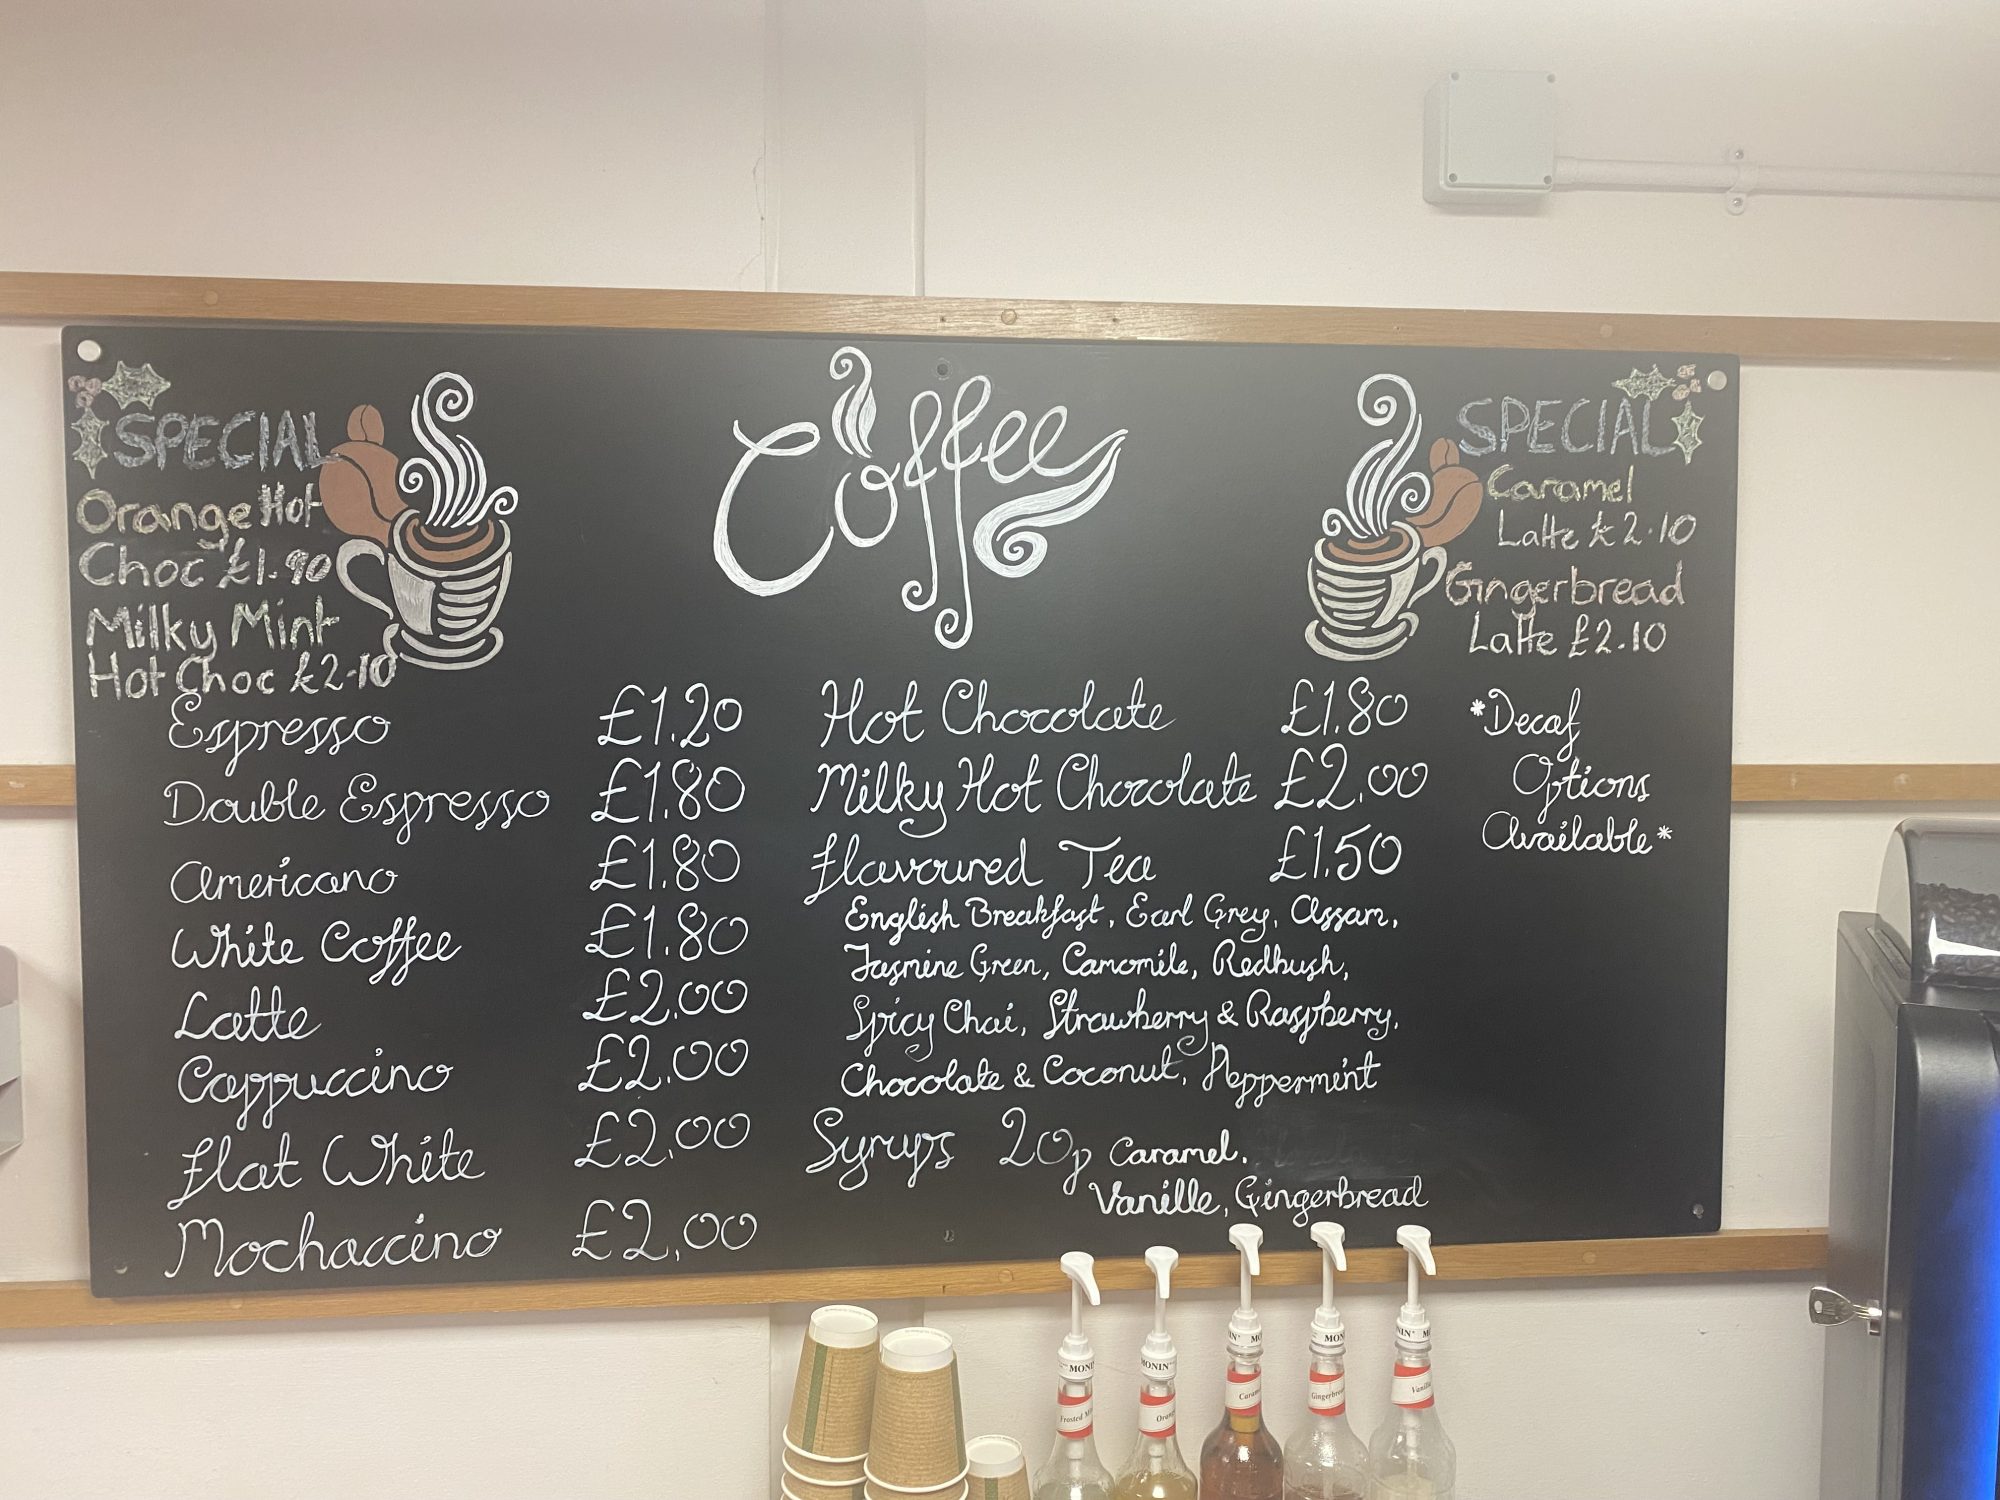 Coffee
SPECIAL
Orange Hot
Choc £1.90
Milky Mint
Hot Choc £2.10
SPECIAL
Caramel
Latte £2.10
Gingerbread
Latte £2.10
Espresso £1.20
Double Espresso £1.80
Americano £1.80
White Coffee £1.80
Latte £2.00
Cappuccino £2.00
Flat White £2.00
Mochaccino £2.00
Hot Chocolate £1.80
Milky Hot Chocolate £2.00
Flavoured Tea £1.50
English Breakfast, Earl Grey, Assam,
Jasmine Green, Camomile, Redbush,
Spicy Chai, Strawberry & Raspberry,
Chocolate & Coconut, Peppermint
Syrups 20p Caramel,
Vanille, Gingerbread
*Decaf
Options
Available*
MONIN
MONIN
MONIN
MON
Frosted